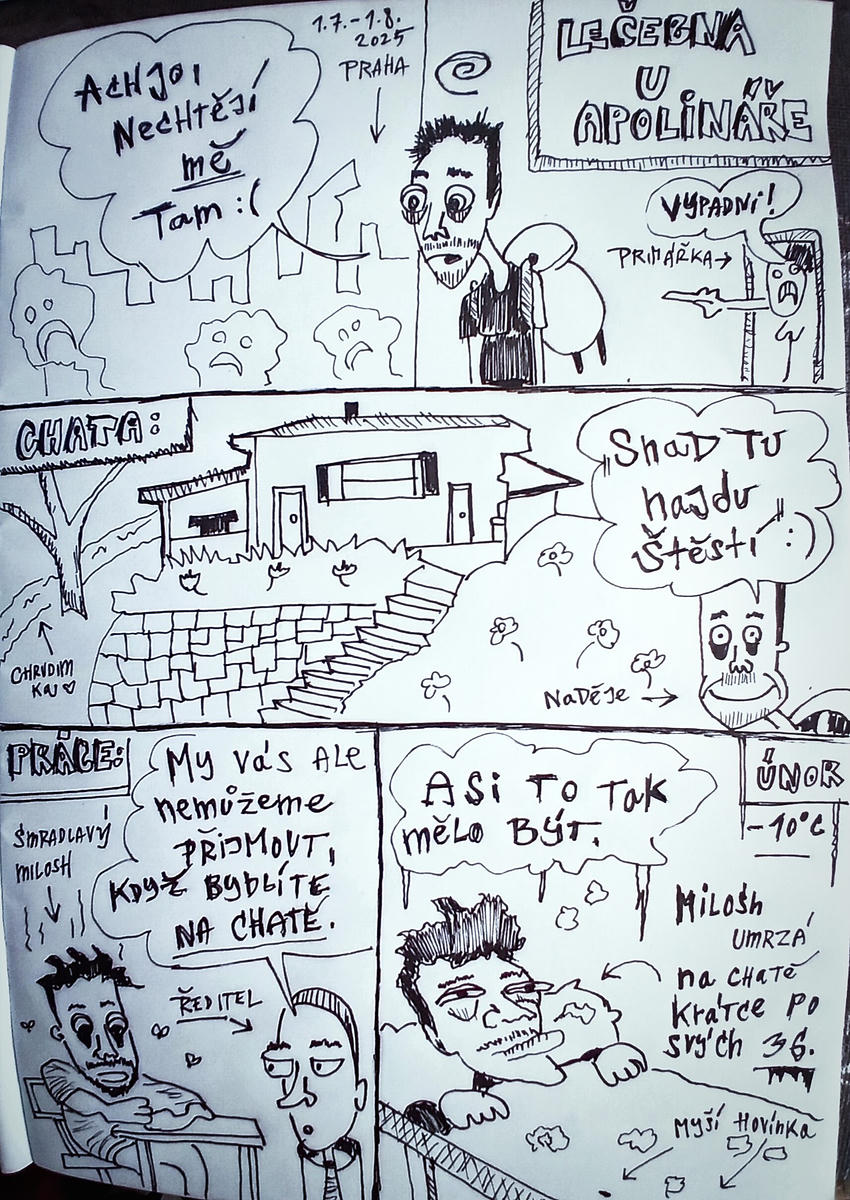 ACH JO,
NECHTĚJÍ
mě
Tam :(
1.7.-1.8.
2025
PRAHA
LÉČEBNA
U
APOLINÁŘE
VYPADNI!
PRIMÁŘKA
CHATA:
„Snad TU
najdu
Štěstí" :)
CHRUDIM
KAJ
NaDěje
PRÁCE:
ŠMRADLAVÝ
MILOSH
My vás ALE
nemůžeme
PŘIJMOUT,
KDYŽ BYDLÍTE
NA CHATĚ.
ŘEDITEL
ÚNOR
-10°C
ASi TO TaK
mělo BÝT.
MiLOSh
UMRZÁ
na CHATĚ
KRÁTCE PO
SVÝCH 36.
MYŠÍ HOVÍNKA